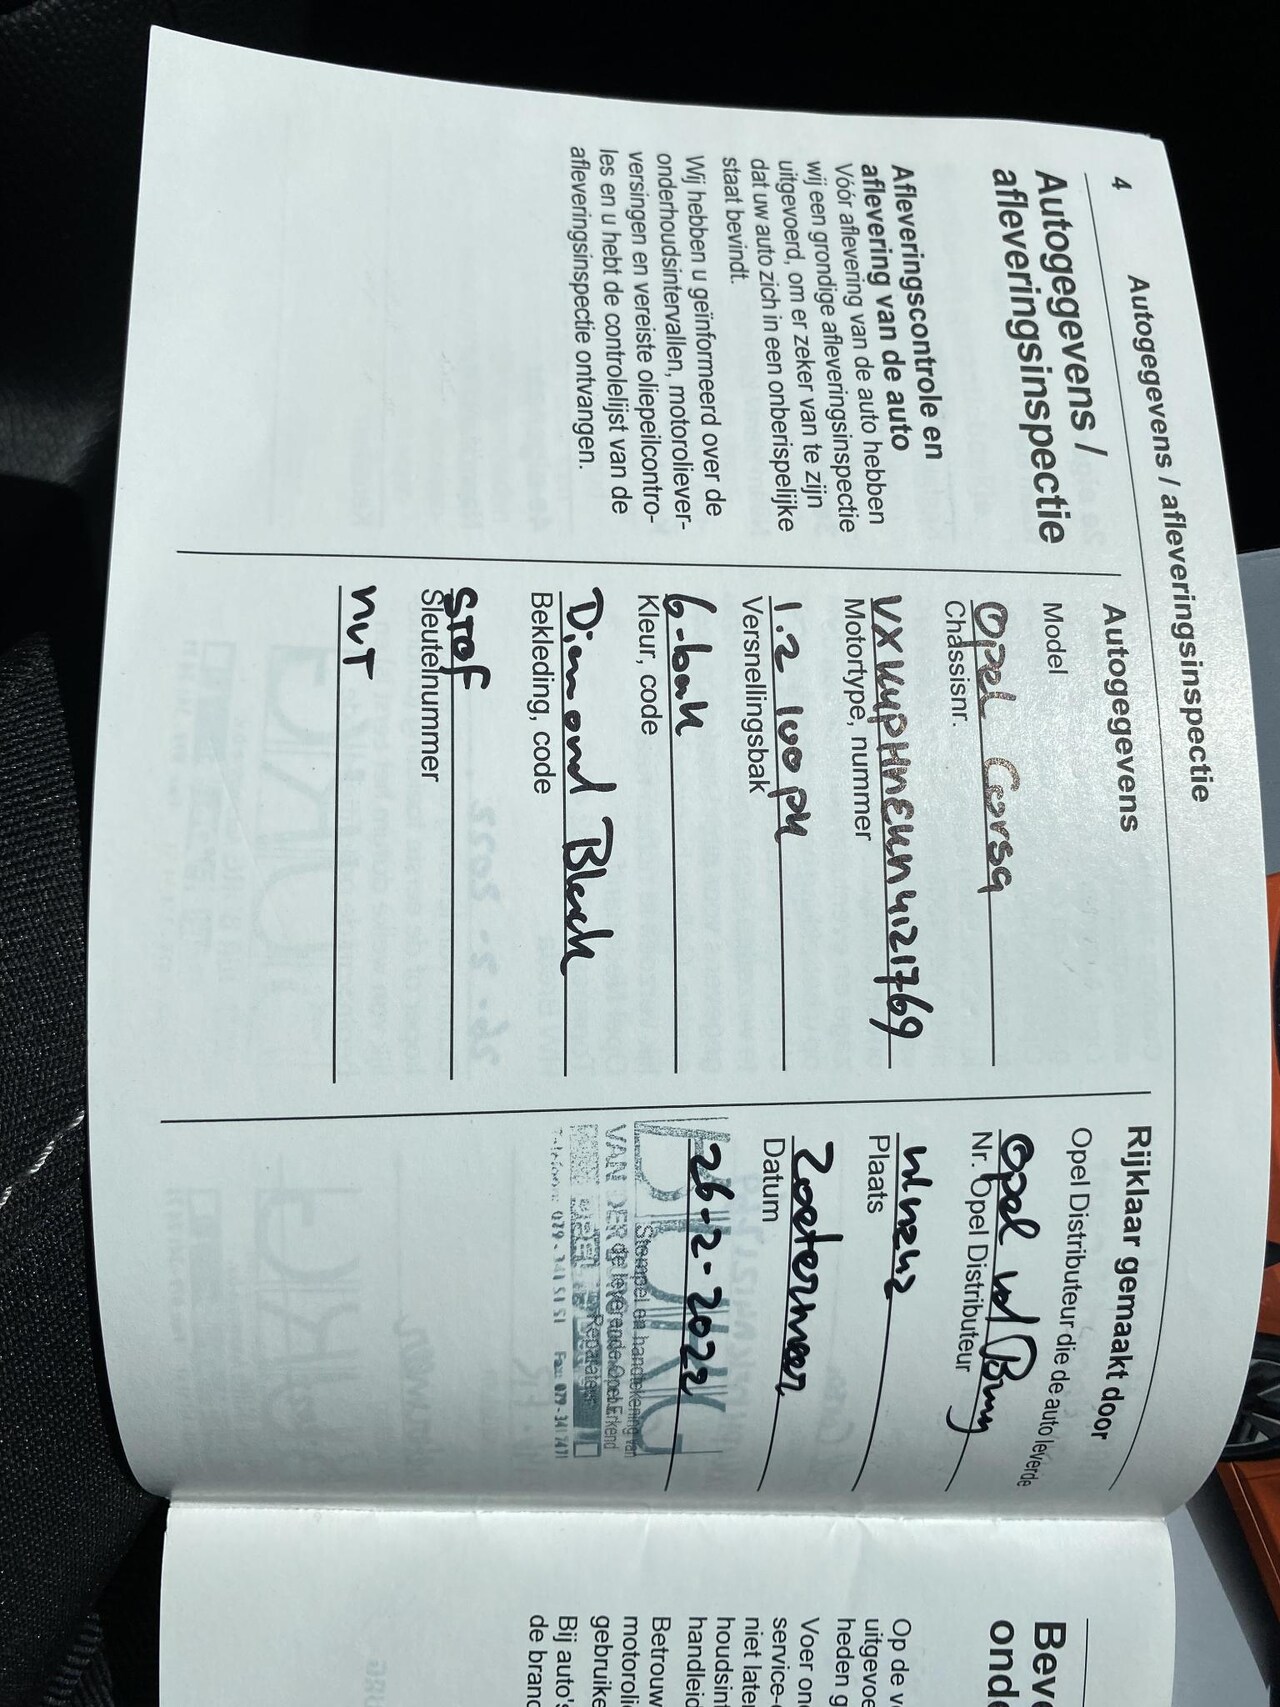 4
Autogegevens / afleveringsinspectie
Autogegevens /
afleveringsinspectie
Afleveringscontrole en
aflevering van de auto
Vóór aflevering van de auto hebben
wij een grondige afleveringsinspectie
uitgevoerd, om er zeker van te zijn
dat uw auto zich in een onberispelijke
staat bevindt.
Wij hebben u geïnformeerd over de
onderhoudsintervallen, motorolieverver-
versingen en vereiste oliepeilcontro-
les en u hebt de controlelijst van de
afleveringsinspectie ontvangen.
Autogegevens
Model
Opel Corsa
Chassisnr.
Motortype, nummer
1.2 100 pk
Versnellingsbak
6-bak
Kleur, code
Diamond Black
Bekleding, code
Stof
Sleutelnummer
nvt
Rijklaar gemaakt door
Opel Distributeur die de auto leverde
Opel vd
Nr. Opel Distributeur
Plaats
Zoetermeer
Datum
26-2-2022
Stempel en handtekening van
de leverende Opel Erkend
Reparateur
VAN DER
079-341 51 51 Fax: 079-341 7471
Beve
onde
Op de v
uitgevoe
heden g
Voer on
service-
niet late
houdsin
handleid
Betrouw
motoroli
gebruike
Bij auto's
de branc